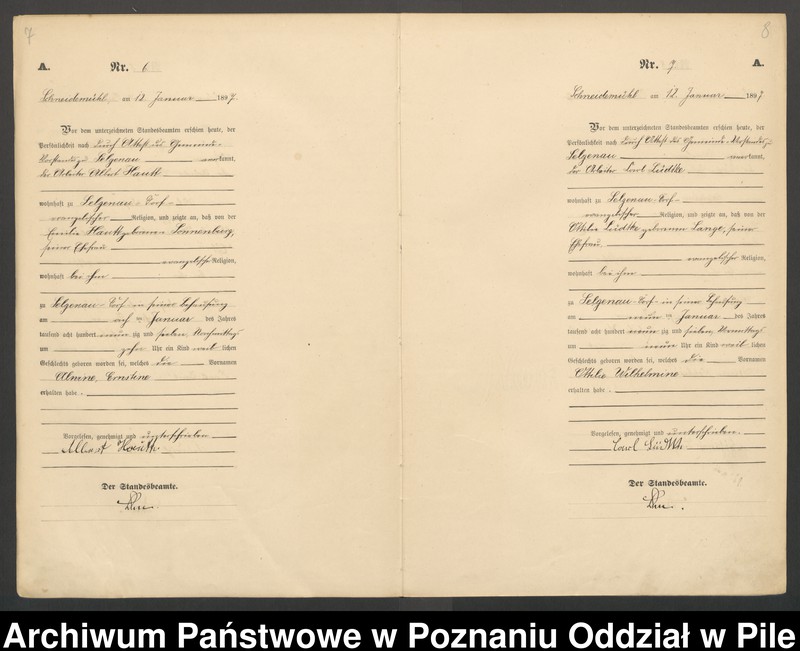 7
A.
Nr. 6
Schneidemühl am 12. Januar 1897
Vor dem unterzeichneten Standesbeamten erschien heute, der
Persönlichkeit nach durch Attest des Gemeinde-
Vorstandes zu Selgenau anerkannt,
der Arbeiter Albert
wohnhaft zu Selgenau-Dorf-
evangelischer Religion, und zeigte an, daß von der
Emilie geborenen Sonnenberg,
seiner Ehefrau
evangelischer Religion,
wohnhaft bei ihm
zu Selgenau-Dorf in seiner Behausung
am acht ten Januar des Jahres
tausend acht hundert neun zig und sieben, Nachmittags
um zehn Uhr ein Kind weib lichen
Geschlechts geboren worden sei, welches die Vornamen
Ernstine
erhalten habe.
Vorgelesen, genehmigt und unterschrieben
Albert
Der Standesbeamte.
8
Nr. 7
A.
Schneidemühl am 12. Januar 1897
Vor dem unterzeichneten Standesbeamten erschien heute, der
Persönlichkeit nach durch Attest des Gemeinde-Vorstandes zu
Selgenau anerkannt,
der Arbeiter Carl Lüdtke
wohnhaft zu Selgenau-Dorf-
evangelischer Religion, und zeigte an, daß von der
Ottilie Lüdtke geborenen Lange, seiner
Ehefrau
evangelischer Religion,
wohnhaft bei ihm
zu Selgenau-Dorf in seiner Behausung
am neun ten Januar des Jahres
tausend acht hundert neun zig und sieben, Vormittags
um neun Uhr ein Kind weib lichen
Geschlechts geboren worden sei, welches die Vornamen
Ottilie Wilhelmine
erhalten habe.
Vorgelesen, genehmigt und unterschrieben.
Carl Lüdtke
Der Standesbeamte.
Archiwum Państwowe w Poznaniu Oddział w Pile